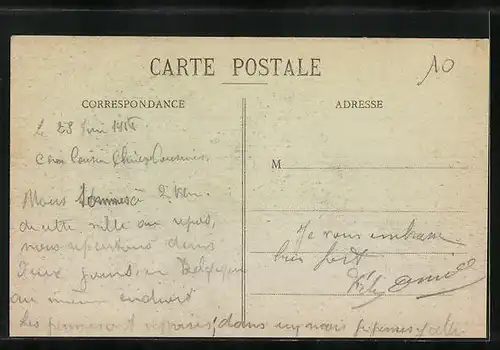 CARTE POSTALE
10
CORRESPONDANCE
ADRESSE
Le 28 Juin
Cher Cousin Chère Cousine
M
Nous sommes à 2 Km.
de cette ville au repos,
nous repartons dans
deux jours, en Belgique
au même endroit
Les permes sont reprises, dans un mois
Je vous embrasse
bien fort